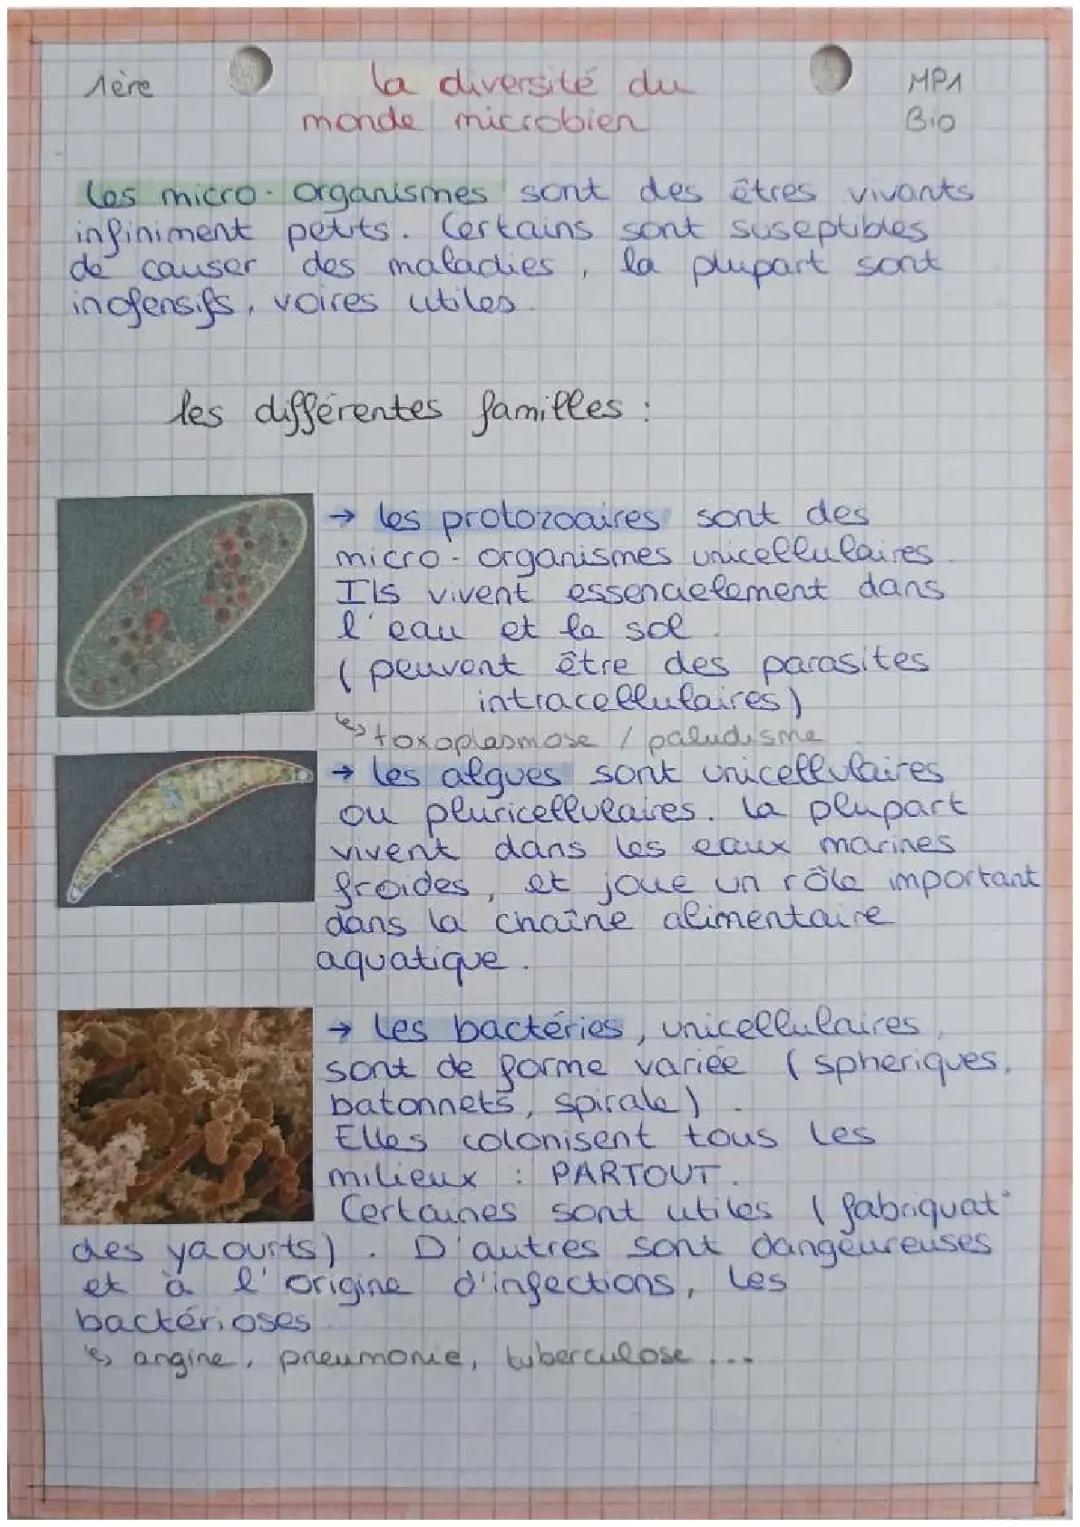 1ère
La diversité du
monde microbien
MP1
Bio
Les micro-organismes sont des êtres vivants
infiniment petits. Certains sont suseptibles
de causer des maladies, la plupart sont
inofensifs, voires utiles.
les différentes familles :
→ Les protozoaires sont des
micro-organismes unicellulaires.
Ils vivent essencielement dans
l'eau et le sol.
(peuvent être des parasites
intracellulaires)
↳ toxoplasmose / paludisme
→ Les algues sont unicellulaires
ou pluricellulaires. La plupart
vivent dans les eaux marines
froides, et joue un rôle important
dans la chaîne alimentaire
aquatique.
→ Les bactéries, unicellulaires,
sont de forme variée (spheriques,
batonnets, spirale).
Elles colonisent tous les
milieux : PARTOUT.
Certaines sont utiles (fabriquat°
des yaourts). D'autres sont dangeureuses
et à l'origine d'infections, les
bactérioses.
↳ angine, pneumonie, tuberculose...